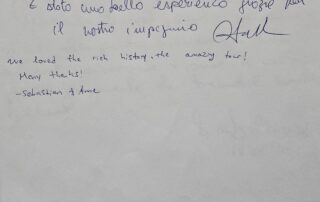 È stato una bella esperienza grazie per
il vostro impegno
We loved the rich history, the amazing tour!
Many thanks!
- Sebastian & Anne